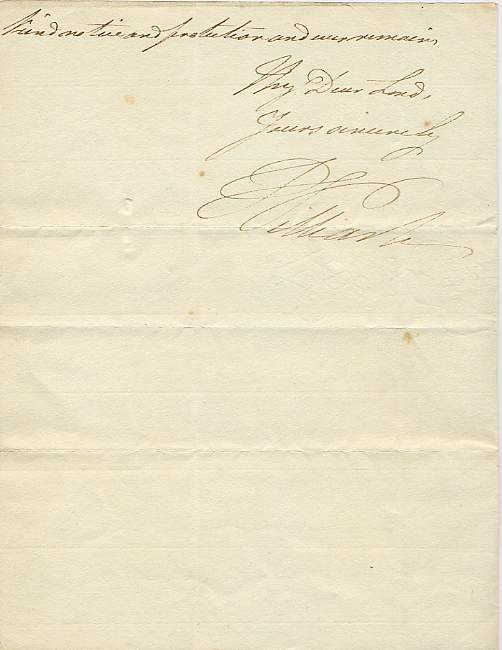 kind notice and protection and ever remain,
My Dear Lord,
Yours sincerely
William